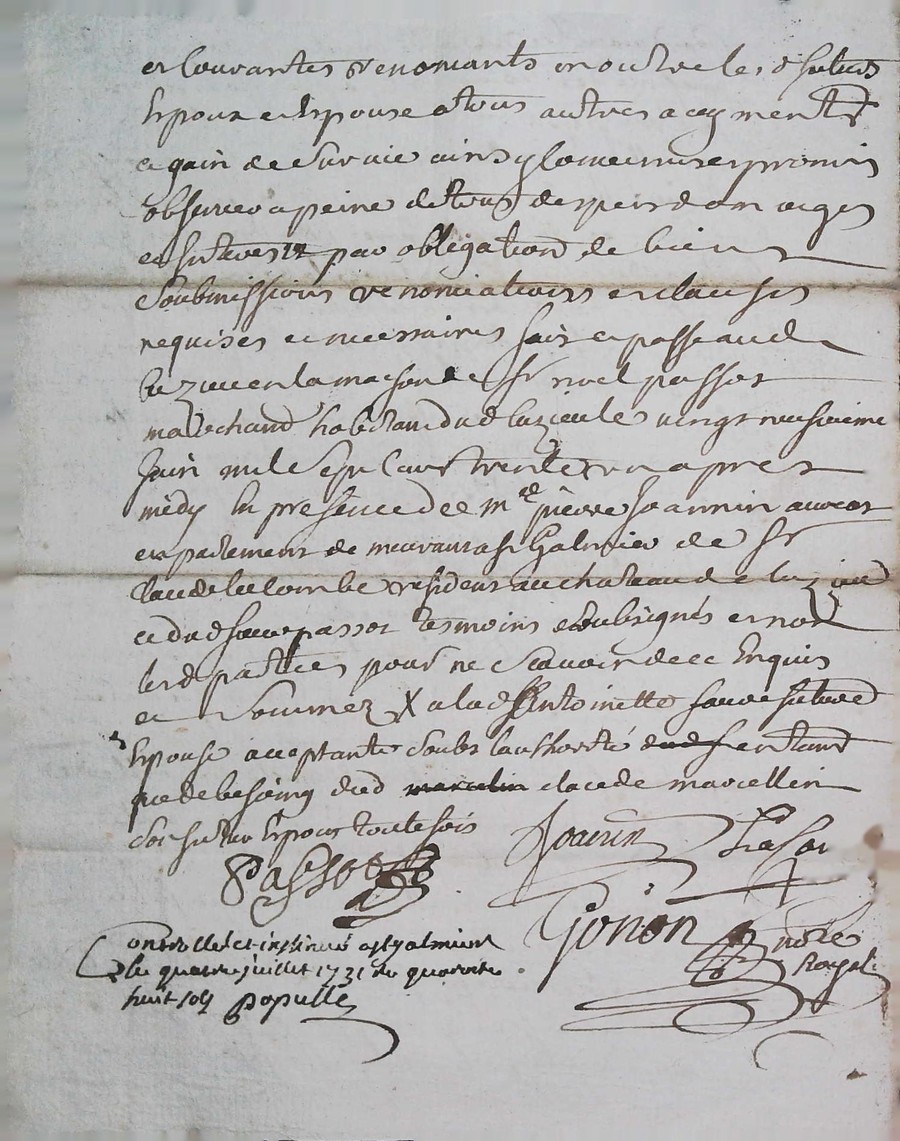 et louvantes renoncants en outre les d futurs
Epoux et Epouse a tous autres augments
et gain de survie ainsy lont convenu et promis
observer a peine de tous despens domages
et interests par obligation de biens
Soubmissions renonciations et clauses
requises et necessaires fait et passe aud
Luzieu en la maison de Sr noel passot
marchand habitant dud luzieu le vingt neufvieme
Juin mil Sept Cent trente un apres
midy En presence de Me pierre Joannin avocat
en parlement de meurant a St Galmier de Sr
Claude lacombe resident au chateau de luzieu
et dud Sieur passot tesmoins soubsignés et non
lesd parties pour ne Scavoir de ce Enquis
et Sommez X a lad Antoinette faure future
Epouse acceptante soubs lauthorité
que de besoing dud claude marcellin
Son futur Epoux toutefois
Joannin
Passot
Gonon notre
Royal
Controllé et insinué a St galmier
le quatre juillet 1731 reçu quarante
huit sols populle